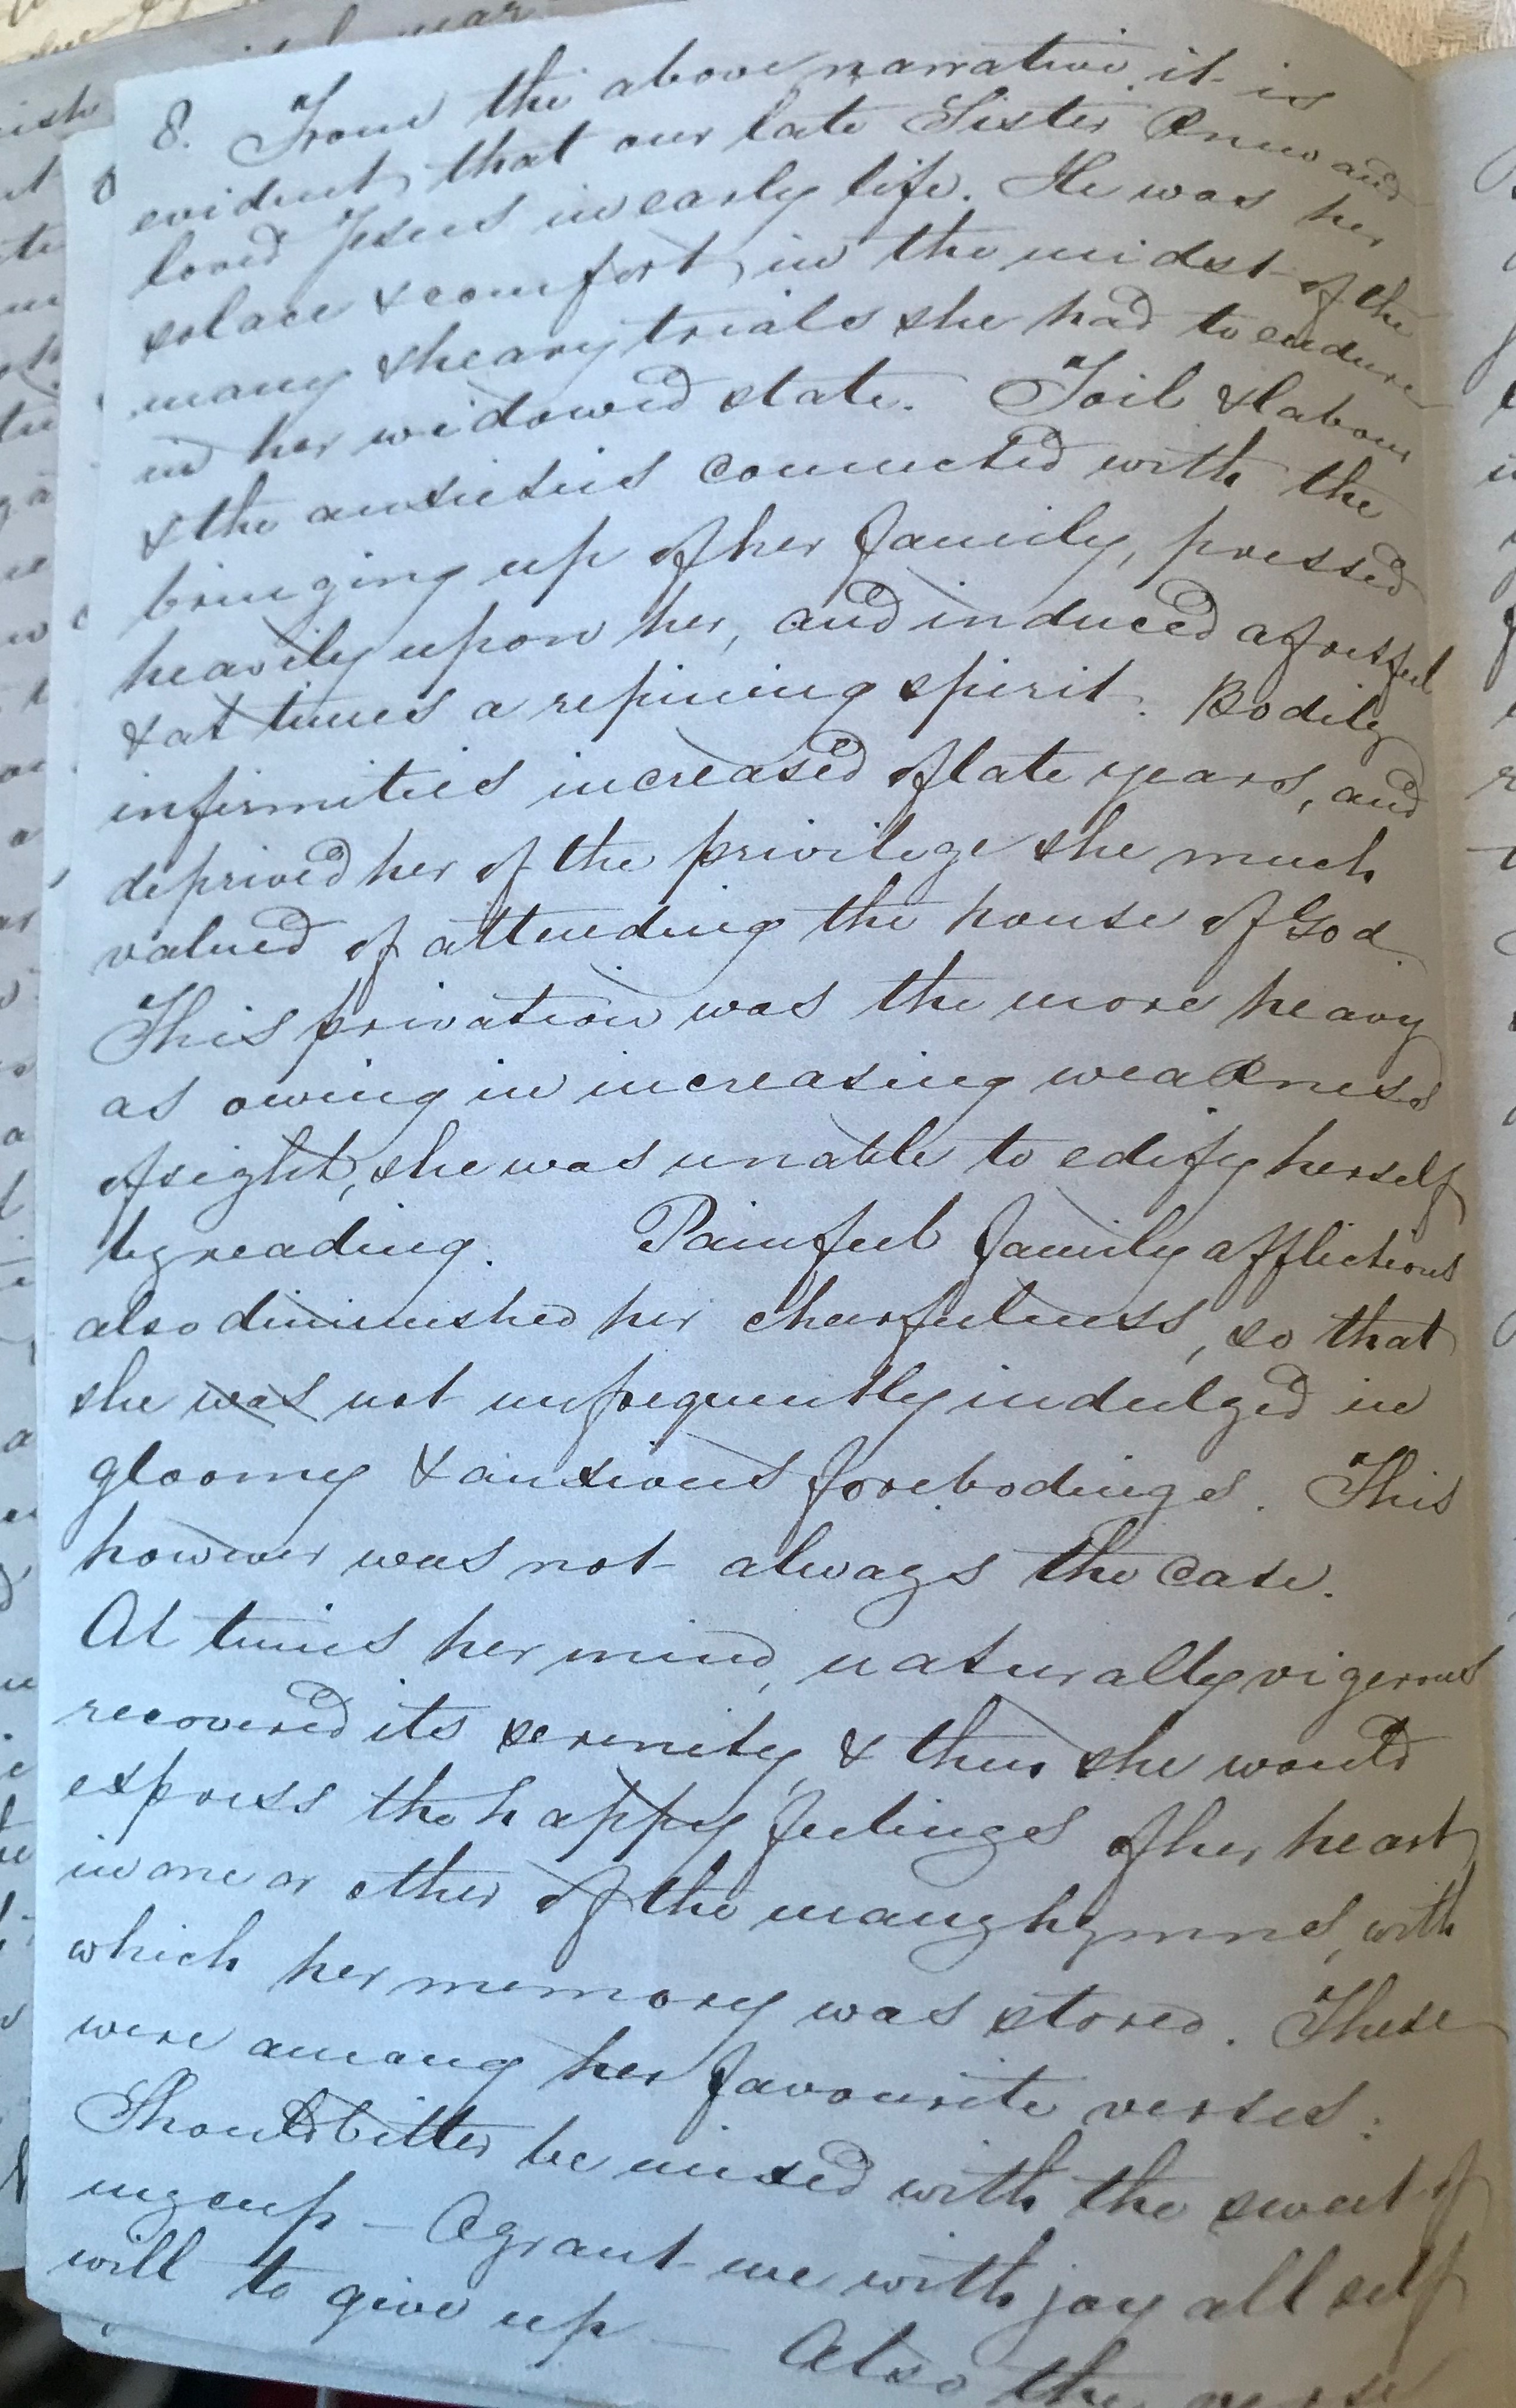 8. From the above narrative it is
evident, that our late Sister knew and
loved Jesus in early life. He was her
solace & comfort, in the midst of the
many & heavy trials she had to endure
in her widowed state. Toil & labour
& the anxieties connected with the
bringing up of her family, pressed
heavily upon her, and induced a fretful
& at times a repining spirit. Bodily
infirmities increased of late years, and
deprived her of the privilege she much
valued of attending the house of God.
This privation was the more heavy
as owing in increasing weakness
of sight, she was unable to edify herself
by reading. Painful family afflictions
also diminished her cheerfulness, so that
she was not unfrequently indulged in
gloomy & anxious forebodings. This
however was not always the case.
At times her mind, naturally vigerous
recovered its serenity, & then she would
express the happy feelings of her heart
in one or other of the many hymns, with
which her memory was stored. These
were among her favourite verses:
Should bitter be mixed with the sweet of
my cup — O grant me with joy all self
will to give up — Also the verse